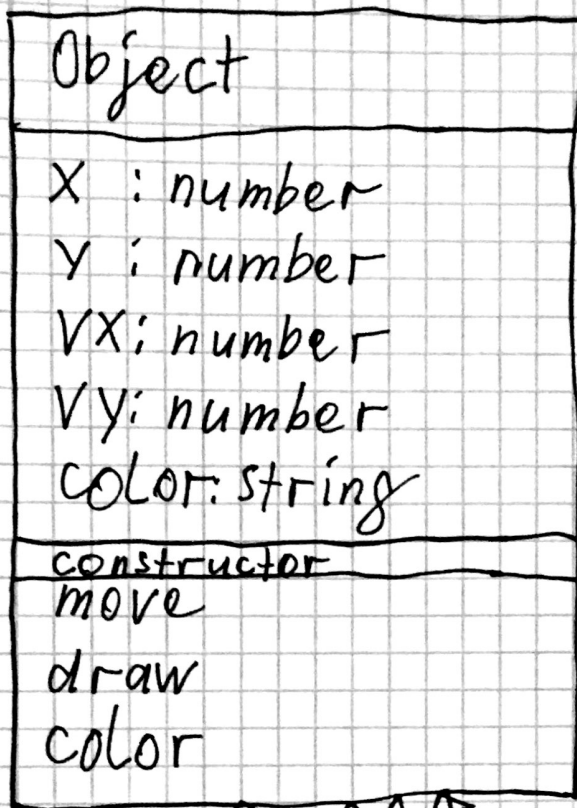 Object
X : number
Y : number
VX: number
VY: number
color: string
constructor
move
draw
color